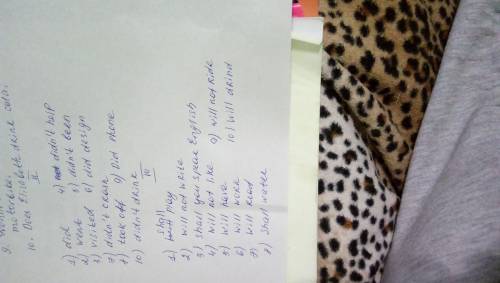 motorbike.
10. Does Elizabeth drink cola.
II
1) did 4) didn't help
2) went 5) didn't been
3) visited 6) did design
7) didn't
8) took off 9) did phone
10) didn't drink
III
1) shall play
2) will not write
3) shall you speak English
4) will not like 9) will not ride
5) will have 10) will drind
6) will wake
7) will read
8) shall water